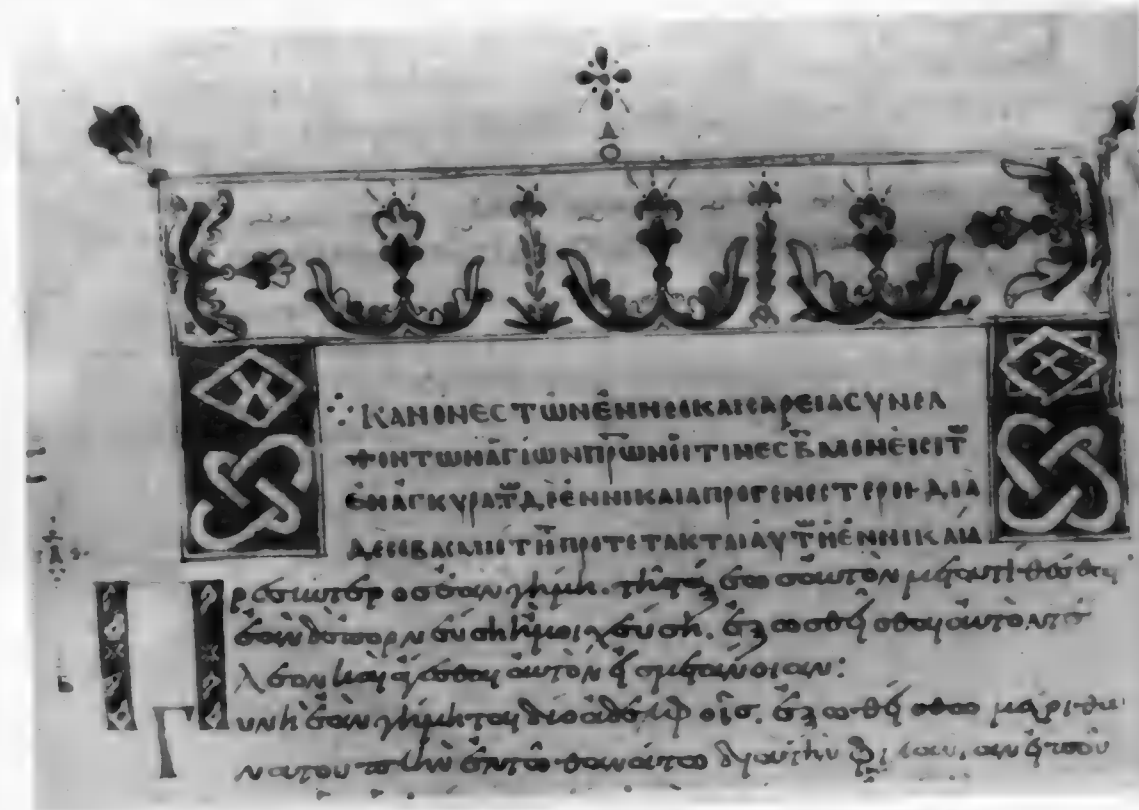 ΚΑΝΟΝΕΣ ΤΩΝ ἘΝ ΝΕΟΚΑΙΣΑΡΕΙΑ ΣΥΝΕΛ
ΘΟΝΤΩΝ ἉΓΙΩΝ ΠΡΩΝ ΟἹΤΙΝΕΣ Β ΜΕΝ ΕἸΣΙ Τ
ἘΝ ἈΓΚΥΡΑ Τ ΔΕ ἘΝ ΝΙΚΑΙΑ ΠΡΟΓΕΝΕΣΤΕΡΟΙ ΔΙΑ
ΔΕ ΣΕΒΑΣΜΙΟΤΗ ΠΡΟΤΕΤΑΚΤΑΙ ΑΥΤΗ ἘΝ ΝΙΚΑΙΑ
Πρεσβύτερος ἐὰν γήμη. τῆς τάξεως αὐτὸν μετατίθεσθαι
ἐὰν δὲ πορνεύση ἢ μοιχεύση. ἐξωθεῖσθαι αὐτὸν τέ
λεον καὶ ἄγεσθαι αὐτὸν εἰς μετάνοιαν:
Γυνὴ ἐὰν γήμηται δύο ἀδελφοῖς. ἐξωθείσθω μέχρι θα
νάτου πλὴν ἐν τῷ θανάτω διὰ τὴν